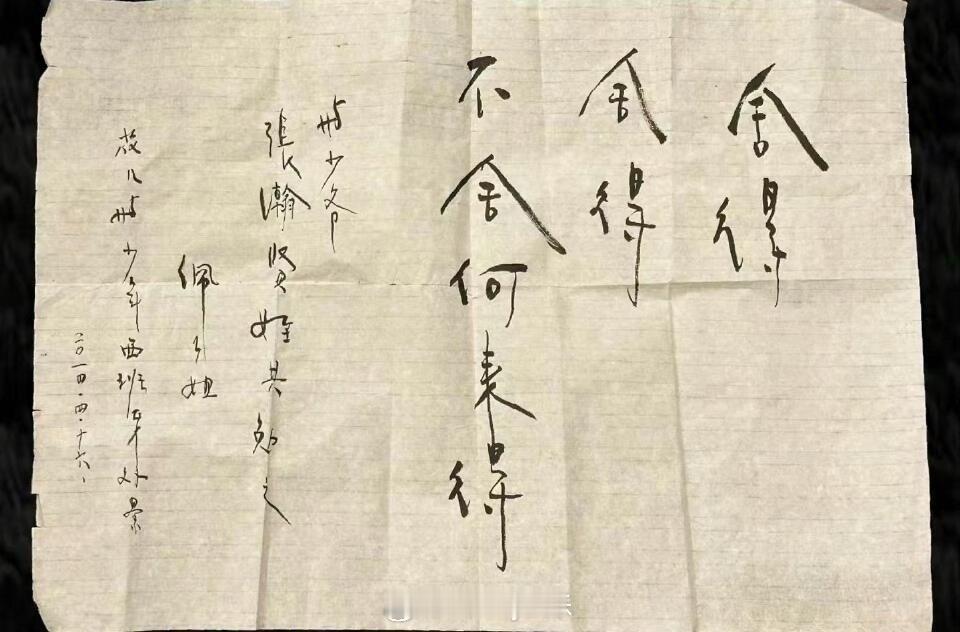 舍得
舍得
不舍何来得
與少爷
張瀚賢姪共勉之
佩姐
於 少年西班牙外景
二〇一四·四·十六